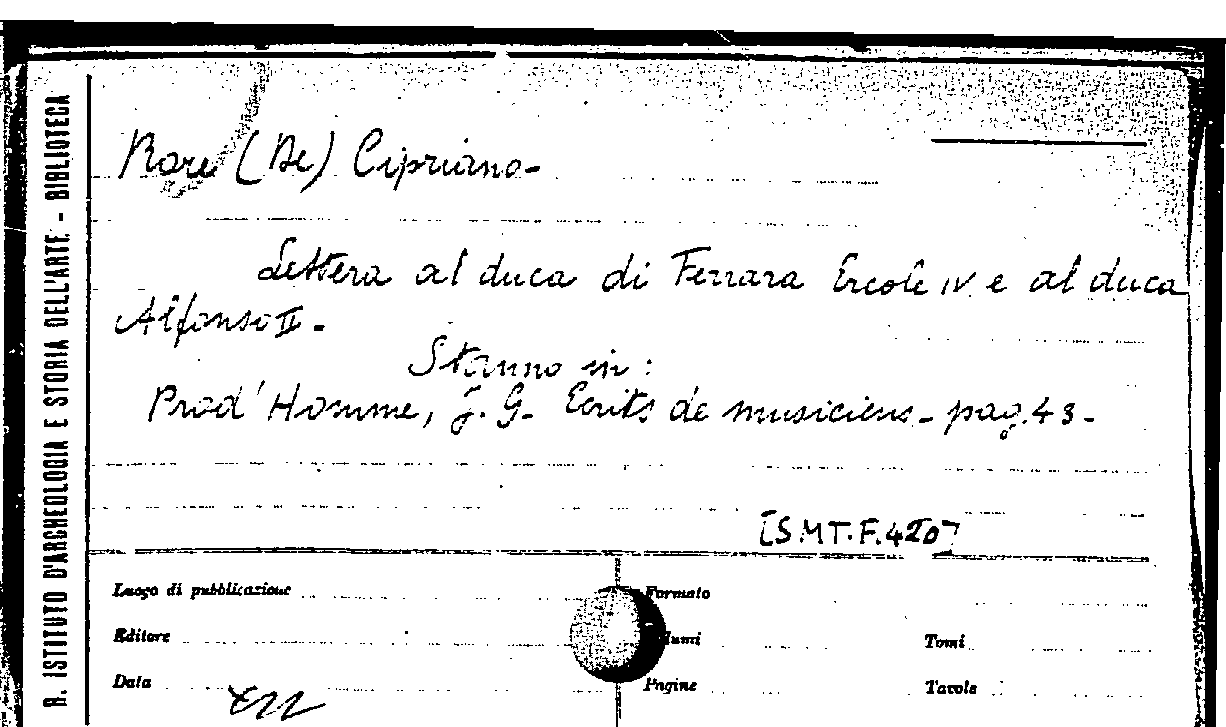 R. ISTITUTO D'ARCHEOLOGIA E STORIA DELL'ARTE. - BIBLIOTECA
Rore (De) Cipriano-
Lettera al duca di Ferrara Ercole IV e al duca
Alfonso II-
Stanno in:
Prod'Homme, J. G- Ecrits de musiciens- pag. 43-
[S.MT.F.420]
Luogo di pubblicazione Formato
Editore Tomi
Data Pagine Tavole